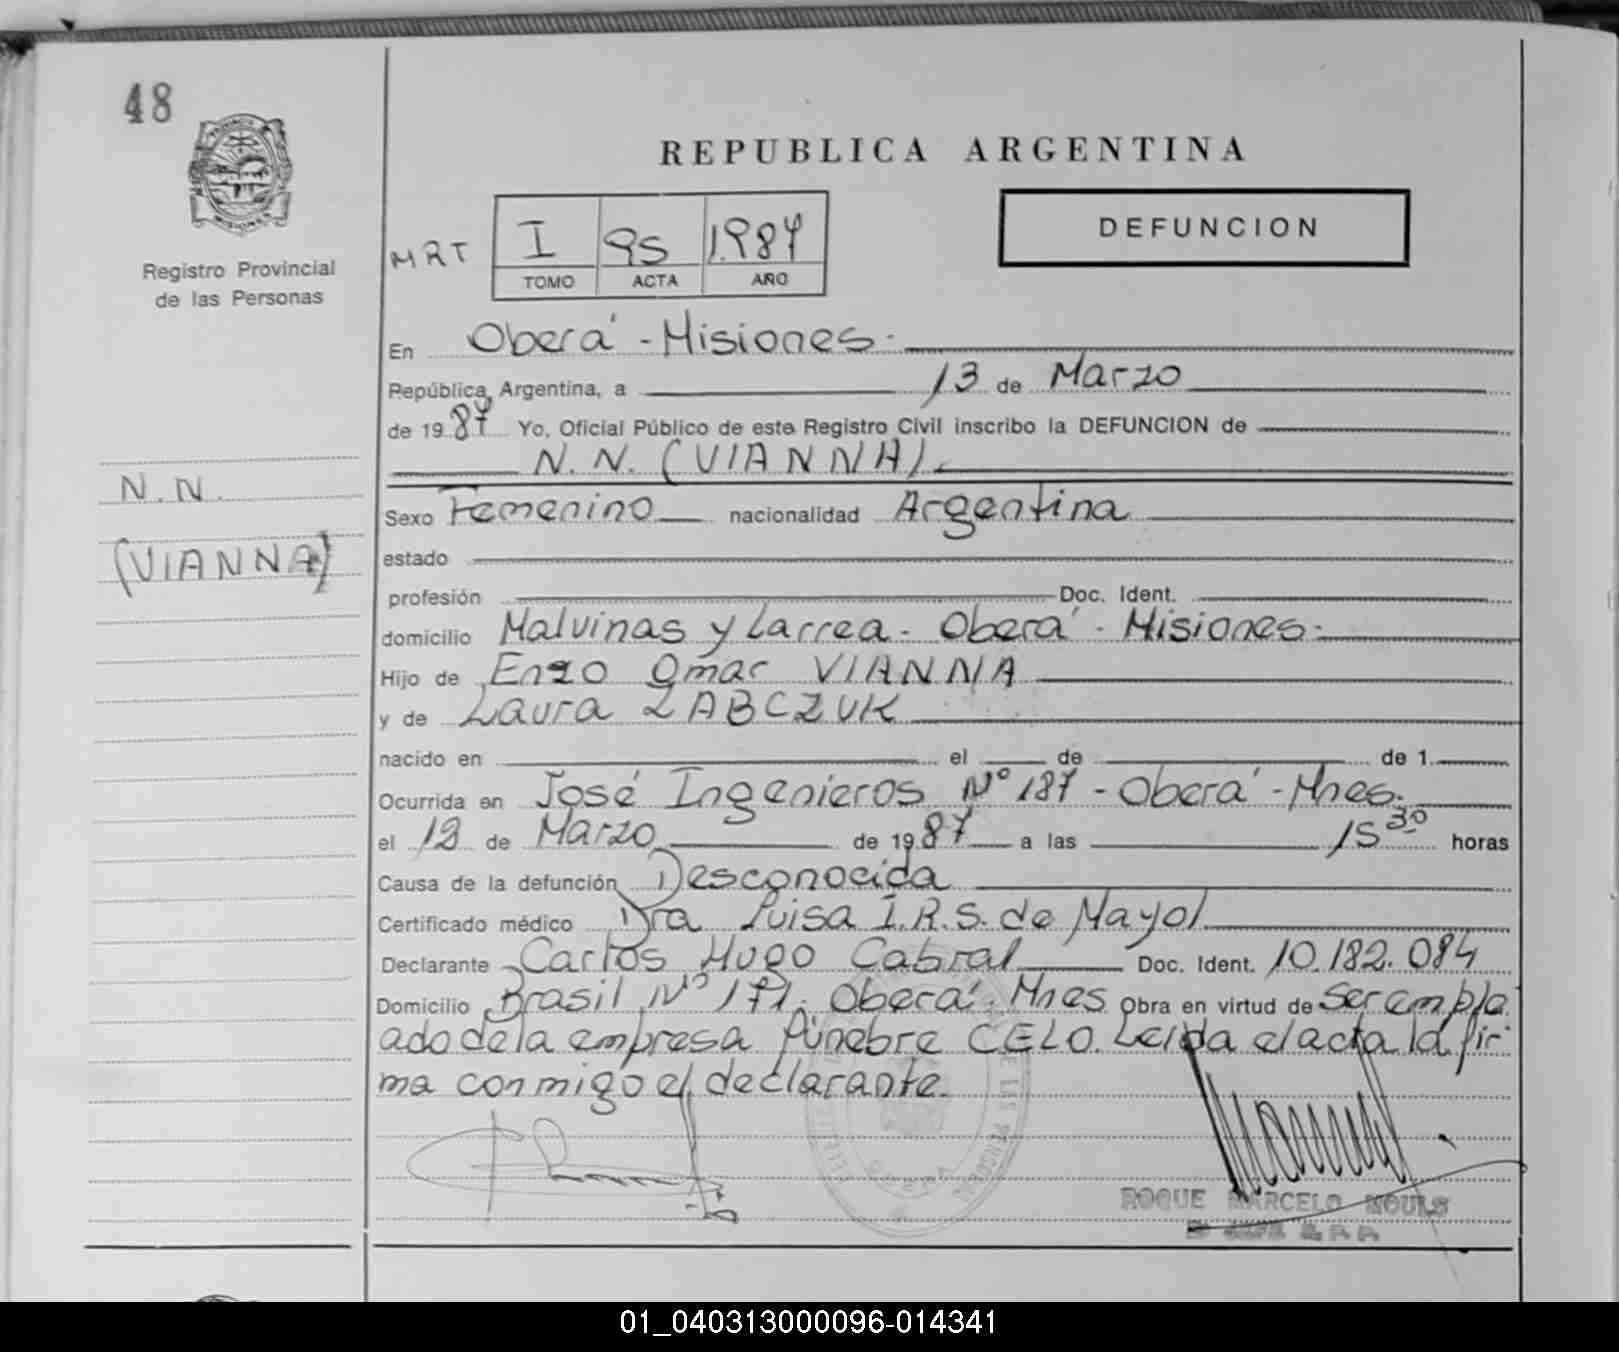 48
PROVINCIA DE
MISIONES
Registro Provincial
de las Personas
N.N.
(VIANNA)
REPUBLICA ARGENTINA
MRT I 95 1.987
TOMO ACTA AÑO
DEFUNCION
En Oberá - Misiones.
República Argentina, a 13 de Marzo
de 1987 Yo, Oficial Público de este Registro Civil inscribo la DEFUNCION de
N. N. (VIANNA).
Sexo Femenino nacionalidad Argentina
estado
profesión Doc. Ident.
domicilio Malvinas y Larrea - Oberá - Misiones.
Hijo de Enzo Omar VIANNA
y de Laura ZABCZUK
nacido en el de de 1.
Ocurrida en José Ingenieros Nº 187 - Oberá - Mnes.
el 12 de Marzo de 1987 a las 15 30 horas
Causa de la defunción Desconocida
Certificado médico Dra Luisa I.R.S. de Mayol
Declarante Carlos Hugo Cabral Doc. Ident. 10.182.084
Domicilio Brasil Nº 171. Oberá. Mnes Obra en virtud de ser emple
ado de la empresa fúnebre CELO. Leída el acta la fir
ma conmigo el declarante.
ROQUE MARCELO
01_040313000096-014341